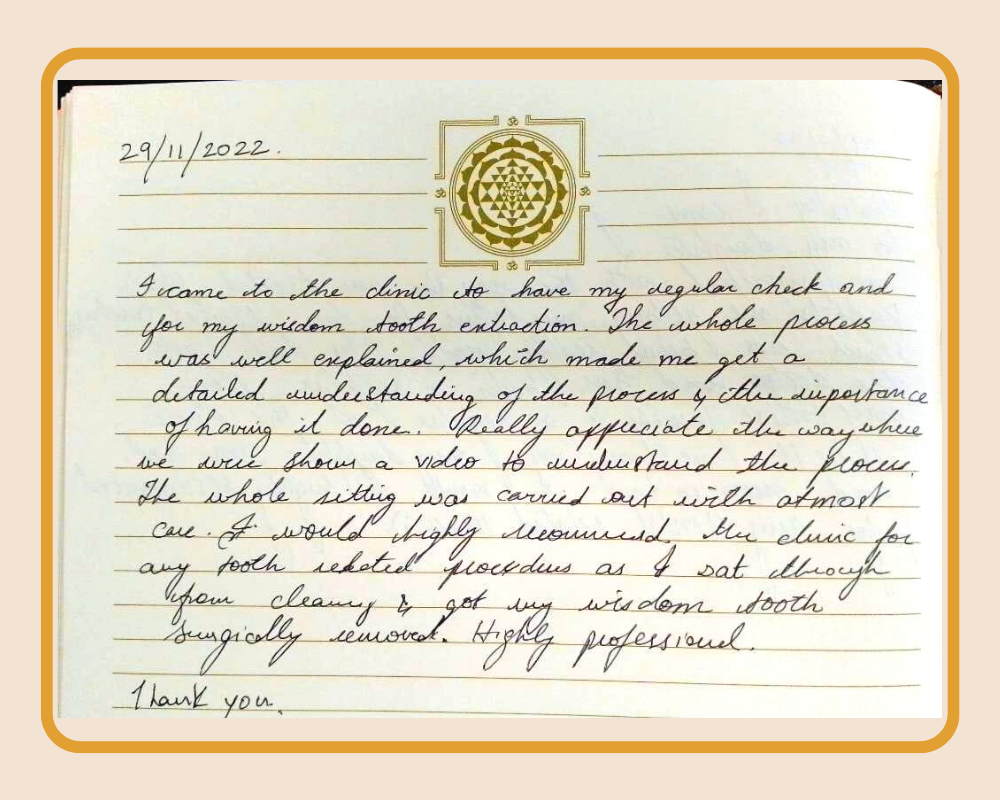 29/11/2022.
I came to the clinic to have my regular check and
for my wisdom tooth extraction. The whole process
was well explained, which made me get a
detailed understanding of the process & the importance
of having it done. Really appreciate the way where
we were shown a video to understand the process.
The whole sitting was carried out with atmost
care. I would highly recommend. the clinic for
any tooth related procedures as I sat through
from cleaning & got my wisdom tooth
surgically removed. Highly professional.
Thank you.